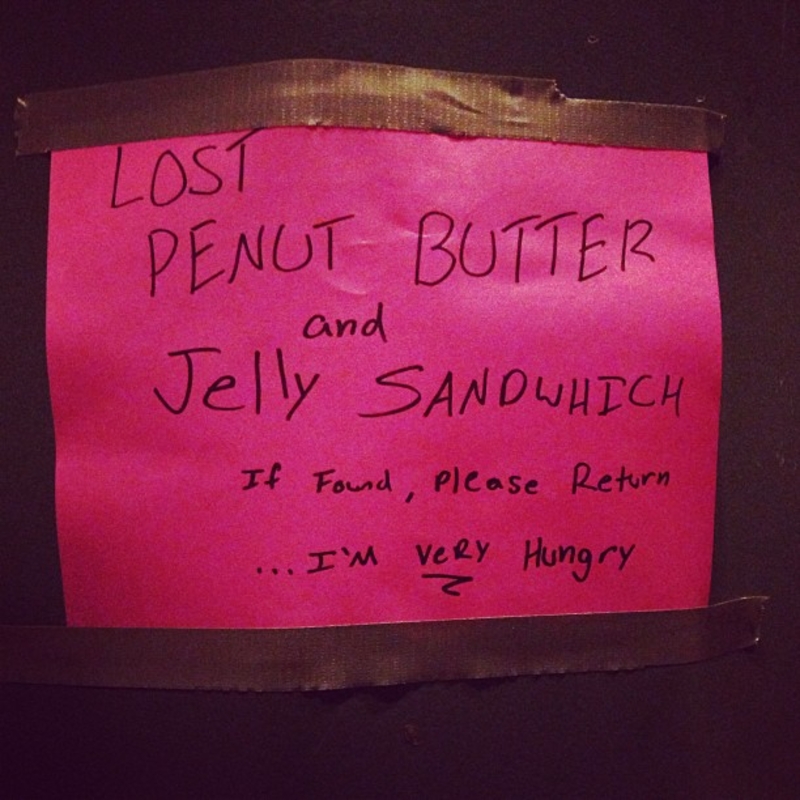 LOST
PENUT BUTTER
and
Jelly SANDWHICH
If Found, Please Return
...I'M VeRY Hungry